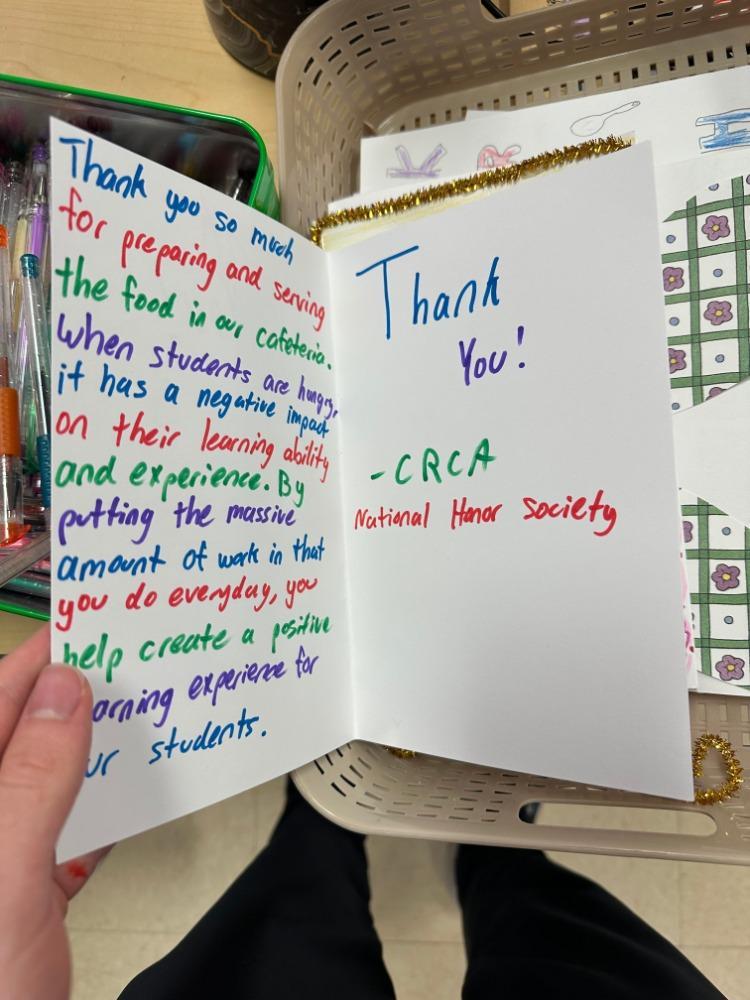 Thank you so much
for preparing and serving
the food in our cafeteria.
When students are hungry,
it has a negative impact
on their learning ability
and experience. By
putting the massive
amount of work in that
you do everyday, you
help create a positive
arning experience for
ur students.
Thank
You!
-CRCA
National Honor Society